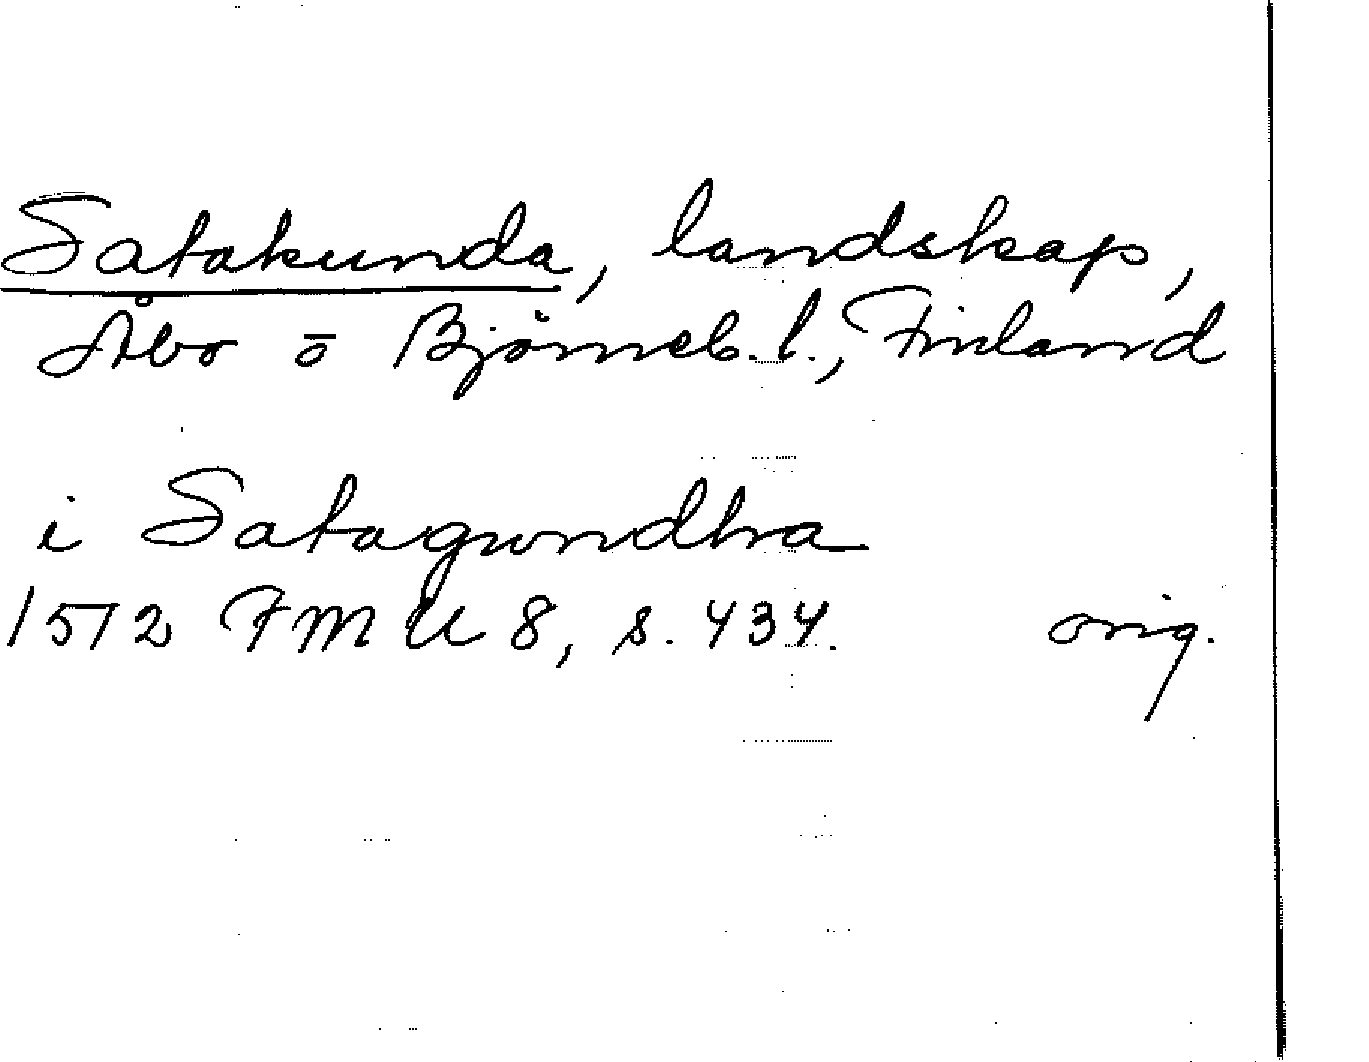 Satakunda, landskap,
Åbo o Björneb. l., Finland
i Satagundha
1512 FMU 8, s. 434. orig.